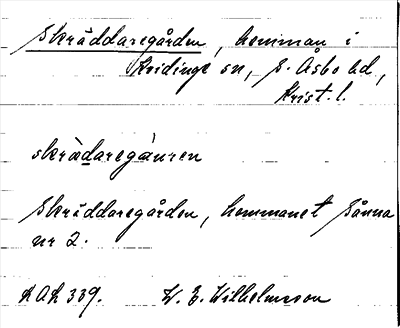 Skräddaregården, hemman i
Kvidinge sn, S. Åsbo hd,
Krist. l.
skrädaregäuren
Skräddaregården, hemmanet Sånna
nr 2.
KAK 339. W. E. Wilhelmsson